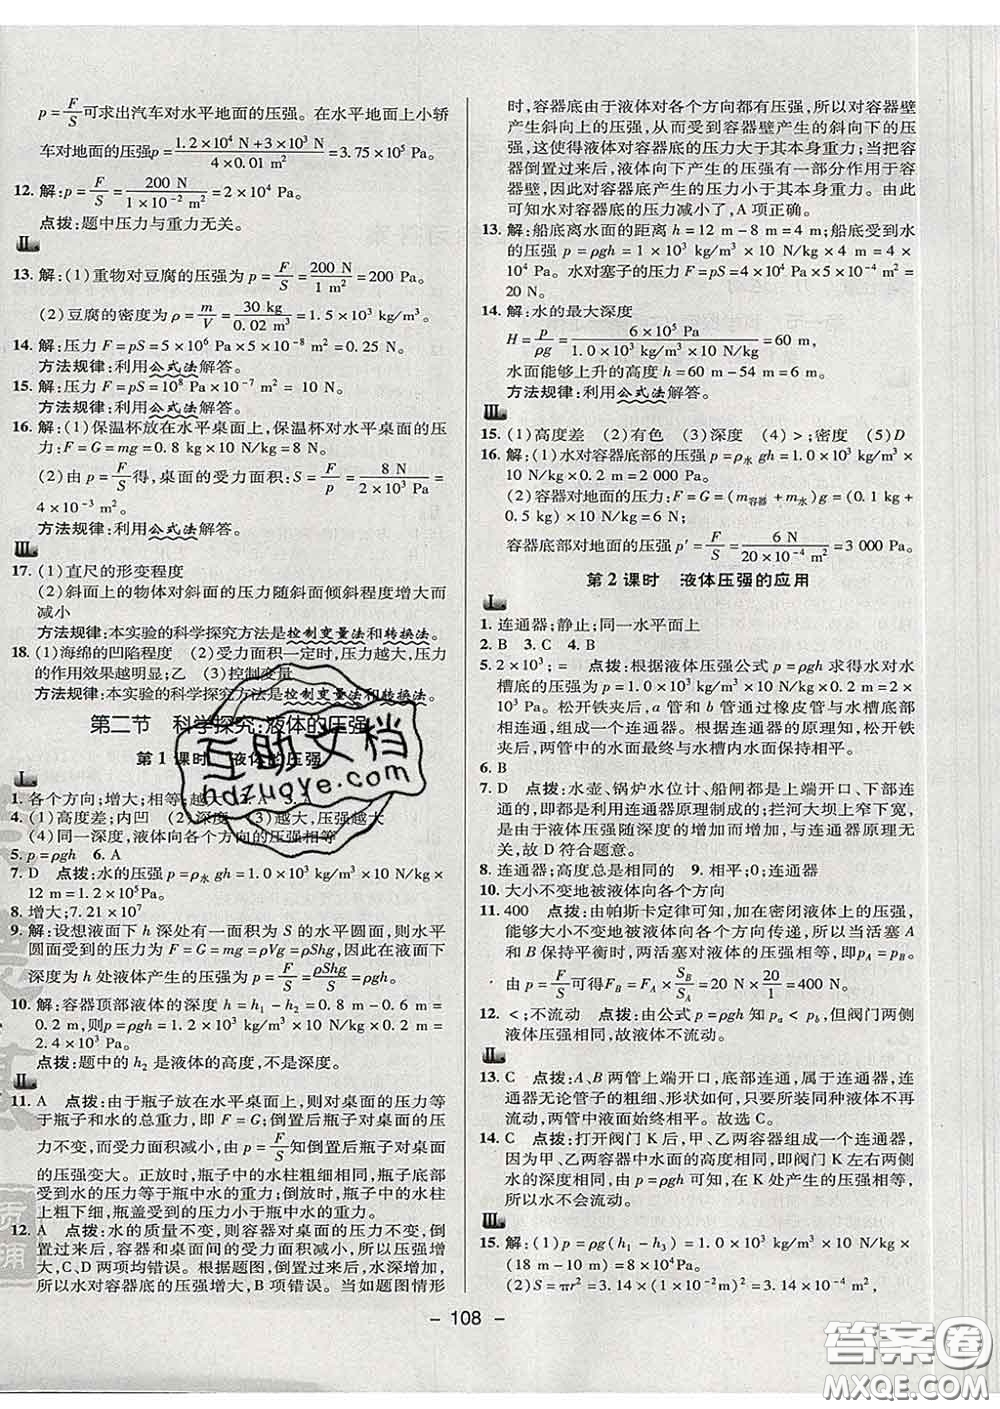 p=F/S可求出汽车对水平地面的压强。在水平地面上小轿
车对地面的压强p=(1.2×10⁴ N+3×10³ N)/(4×0.01 m²)=3.75×10⁵ Pa。
12. 解:p=F/S=200 N/(1×10⁻² m²)=2×10⁴ Pa。
点拨:题中压力与重力无关。
Ⅱ
13. 解:(1)重物对豆腐的压强为p=F/S=200 N/1 m²=200 Pa。
(2)豆腐的密度为ρ=m/V=30 kg/0.02 m³=1.5×10³ kg/m³。
14. 解:压力F=pS=5×10⁶ Pa×5×10⁻⁸ m²=0.25 N。
方法规律:利用公式法解答。
15. 解:压力F=pS=10⁸ Pa×10⁻⁷ m²= 10 N。
方法规律:利用公式法解答。
16. 解:(1)保温杯放在水平桌面上,保温杯对水平桌面的压
力:F=G=mg=0.8 kg×10 N/kg=8 N。
(2)由p=F/S得,桌面的受力面积:S=F/p=8 N/(2×10³ Pa)=
4×10⁻³ m²。
方法规律:利用公式法解答。
Ⅲ
17. (1)直尺的形变程度
(2)斜面上的物体对斜面的压力随斜面倾斜程度增大而
减小
方法规律:本实验的科学探究方法是控制变量法和转换法。
18. (1)海绵的凹陷程度 (2)受力面积一定时,压力越大,压力
的作用效果越明显;乙 (3)控制变量
方法规律:本实验的科学探究方法是控制变量法和转换法。
第二节 科学探究:液体的压强
第1课时 液体的压强
Ⅰ
1. 各个方向;增大;相等;越大 2. A 3. A
4. (1)高度差;内凹 (2)深度 (3)越大,压强越大
(4)同一深度,液体向各个方向的压强相等
5. p=ρgh 6. A
7. D 点拨:水的压强p=ρ水 gh=1.0×10³ kg/m³×10 N/kg×
12 m=1.2×10⁵Pa。
8. 增大;7.21×10⁷
9. 解:设想液面下h深处有一面积为S的水平圆面,则水平
圆面受到的压力为F=G=mg=ρVg=ρShg,因此在液面下
深度为h处液体产生的压强为p=F/S=ρShg/S=ρgh。
10. 解:容器顶部液体的深度h=h₁-h₂=0.8 m-0.6 m=
0.2 m,则p=ρgh=1.2×10³ kg/m³×10 N/kg×0.2 m=
2.4×10³ Pa。
点拨:题中的h₂是液体的高度,不是深度。
Ⅱ
11. A 点拨:由于瓶子放在水平桌面上,则对桌面的压力等
于瓶子和水的总重力,即F=G;倒置后瓶子对桌面的压
力不变,而受力面积减小,由p=F/S知倒置后瓶子对桌面
的压强变大。正放时,瓶子中的水柱粗细相同,瓶子底部
受到水的压力等于瓶中水的重力;倒放时,瓶子中的水柱
上粗下细,瓶盖受到的压力小于瓶中水的重力。
12. A 点拨:水的质量不变,则容器对桌面的压力不变,倒
置过来后,容器和桌面间的受力面积变小,所以压强增
大,C、D两项均错误。容器倒置过来后,水深增加了,所
以水对容器底的压强增大,B项错误。当如题图情形
时,容器底由于液体对各个方向都有压强,所以对容器壁
产生斜向上的压强,从而受到容器壁产生的斜向下的压
强,这使得液体对容器底的压力大于其本身重力。当把容
器倒置过来后,液体向下产生的压强有一部分作用于容
器壁,因此对容器底产生的压力小于其本身重力。由此
可知水对容器底的压力减小了,A项正确。
13. 解:船底离水面的距离h=12 m-8 m=4 m;船底受到水
的压强p=ρgh=1×10³ kg/m³×10 N/kg×4 m=4×
10⁴ Pa。水对塞子的压力F=pS=4×10⁴ Pa×5×10⁻⁴ m²=
20 N。
14. 解:水的最大深度
H=p/ρg=6×10⁵ Pa/(1.0×10³ kg/m³×10 N/kg)=60 m,
水面能够上升的高度h=60 m-54 m=6 m。
方法规律:利用公式法解答。
Ⅲ
15. (1)高度差 (2)有色 (3)深度 (4)>;密度 (5)D
16. 解:(1)水对容器底部的压强p=ρ水 gh=1.0×10³ kg/m³×
10 N/kg×0.2 m=2 000 Pa。
(2)容器对地面的压力:F=G=(m容器+m水)g=(0.1 kg+
0.5 kg)×10 N/kg=6 N;
容器底部对地面的压强p′=F/S=6 N/(20×10⁻⁴ m²)=3 000 Pa。
第2课时 液体压强的应用
Ⅰ
1. 连通器;静止;同一水平面上
2. B 3. C 4. B
5. 2×10³;= 点拨:根据液体压强公式p=ρgh求得水对水
槽底的压强为p=ρgh=1.0×10³ kg/m³×10 N/kg×0.2 m=
2×10³ Pa。松开铁夹后,a管和b管通过橡皮管与水槽底
部相连通,组成一个连通器。根据连通器原理知,松开铁
夹后,两管中的水面最终与水槽内水面保持相平。
6. B
7. D 点拨:水壶、锅炉水位计、船闸都是上端开口、下部连通
的,即都是利用连通器原理制成的;拦河大坝上窄下宽,
是由于液体压强随深度的增加而增加,与连通器原理无
关,故D符合题意。
8. 连通器;高度总是相同的 9. 相平;0;连通器
10. 大小不变地被液体向各个方向
11. 400 点拨:由帕斯卡定律可知,加在密闭液体上的压强,
能够大小不变地被液体向各个方向传递,所以当活塞A
和B保持平衡时,两活塞对液体的压强相等,即pA=pB。
由p=F/S可得FB=FA×SB/SA=20 N×20/1=400 N。
12. <;不流动 点拨:由公式p=ρgh知pa<pb,但阀门两侧
液体压强相同,故液体不流动。
Ⅱ
13. C 点拨:A、B两管上端开口,底部连通,属于连通器,连通
器无论管子的粗细、形状如何,只要所装同种液体不再
流动,两管中液面始终相平。故选C。
14. C 点拨:打开阀门K后,甲、乙两容器组成一个连通器,
因为甲、乙两容器中水面的高度相同,即阀门K左右两侧
水的深度是相同的,根据p=ρgh知,在K处产生的压强相等,
所以水不会流动。
Ⅲ
15. 解:(1)p=ρg(h₁-h₃)=1.0×10³ kg/m³×10 N/kg×
(18 m-10 m)=8×10⁴ Pa;
(2)S=πr²=3.14×(1×10⁻² m)²=3.14×10⁻⁴ m²,
- 108 -
互助文档
hdzuoye.com
答案圈
MXQE.COM